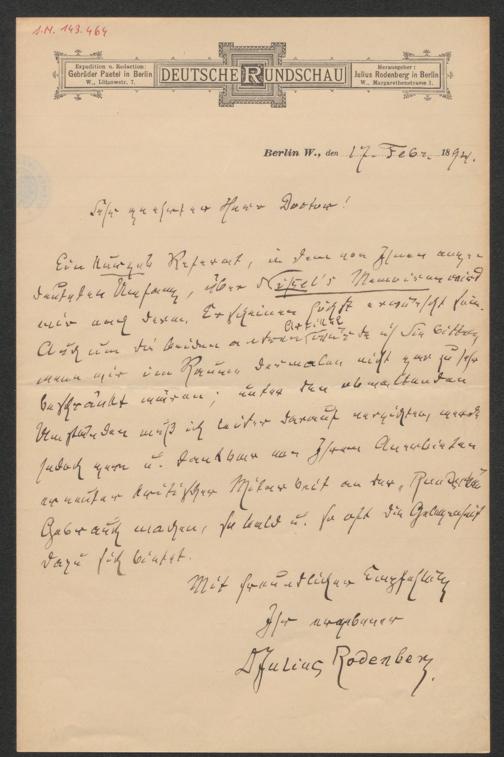 I.N. 143.464
Expedition u. Redaction:
Gebrüder Paetel in Berlin
W., Lützowstr. 7.
DEUTSCHE RUNDSCHAU
Herausgeber:
Julius Rodenberg in Berlin
W., Margarethenstrasse 1.
Berlin W., den 17. Febr. 1894.
Sehr geehrter Herr Doctor!
Ein kurzes Referat, in dem von Ihnen ange-
deuteten Umfang, über 's Memoiren wird
mir nach deren Erscheinen höchst erwünscht sein.
Auch um die beiden andren Artikel würde ich Sie bitten,
wenn wir im Raume dermalen nicht gar zu sehr
beschränkt wären; unter den obwaltenden
Umständen muß ich leider darauf verzichten, werde
jedoch gern u. dankbar von Ihrem Anerbieten
erneuter kritischer Mitarbeit an der „Rundschau"
Gebrauch machen, so bald u. so oft die Gelegenheit
dazu sich bietet.
Mit freundlicher Empfehlung
Ihr ergebener
Dr Julius Rodenberg.